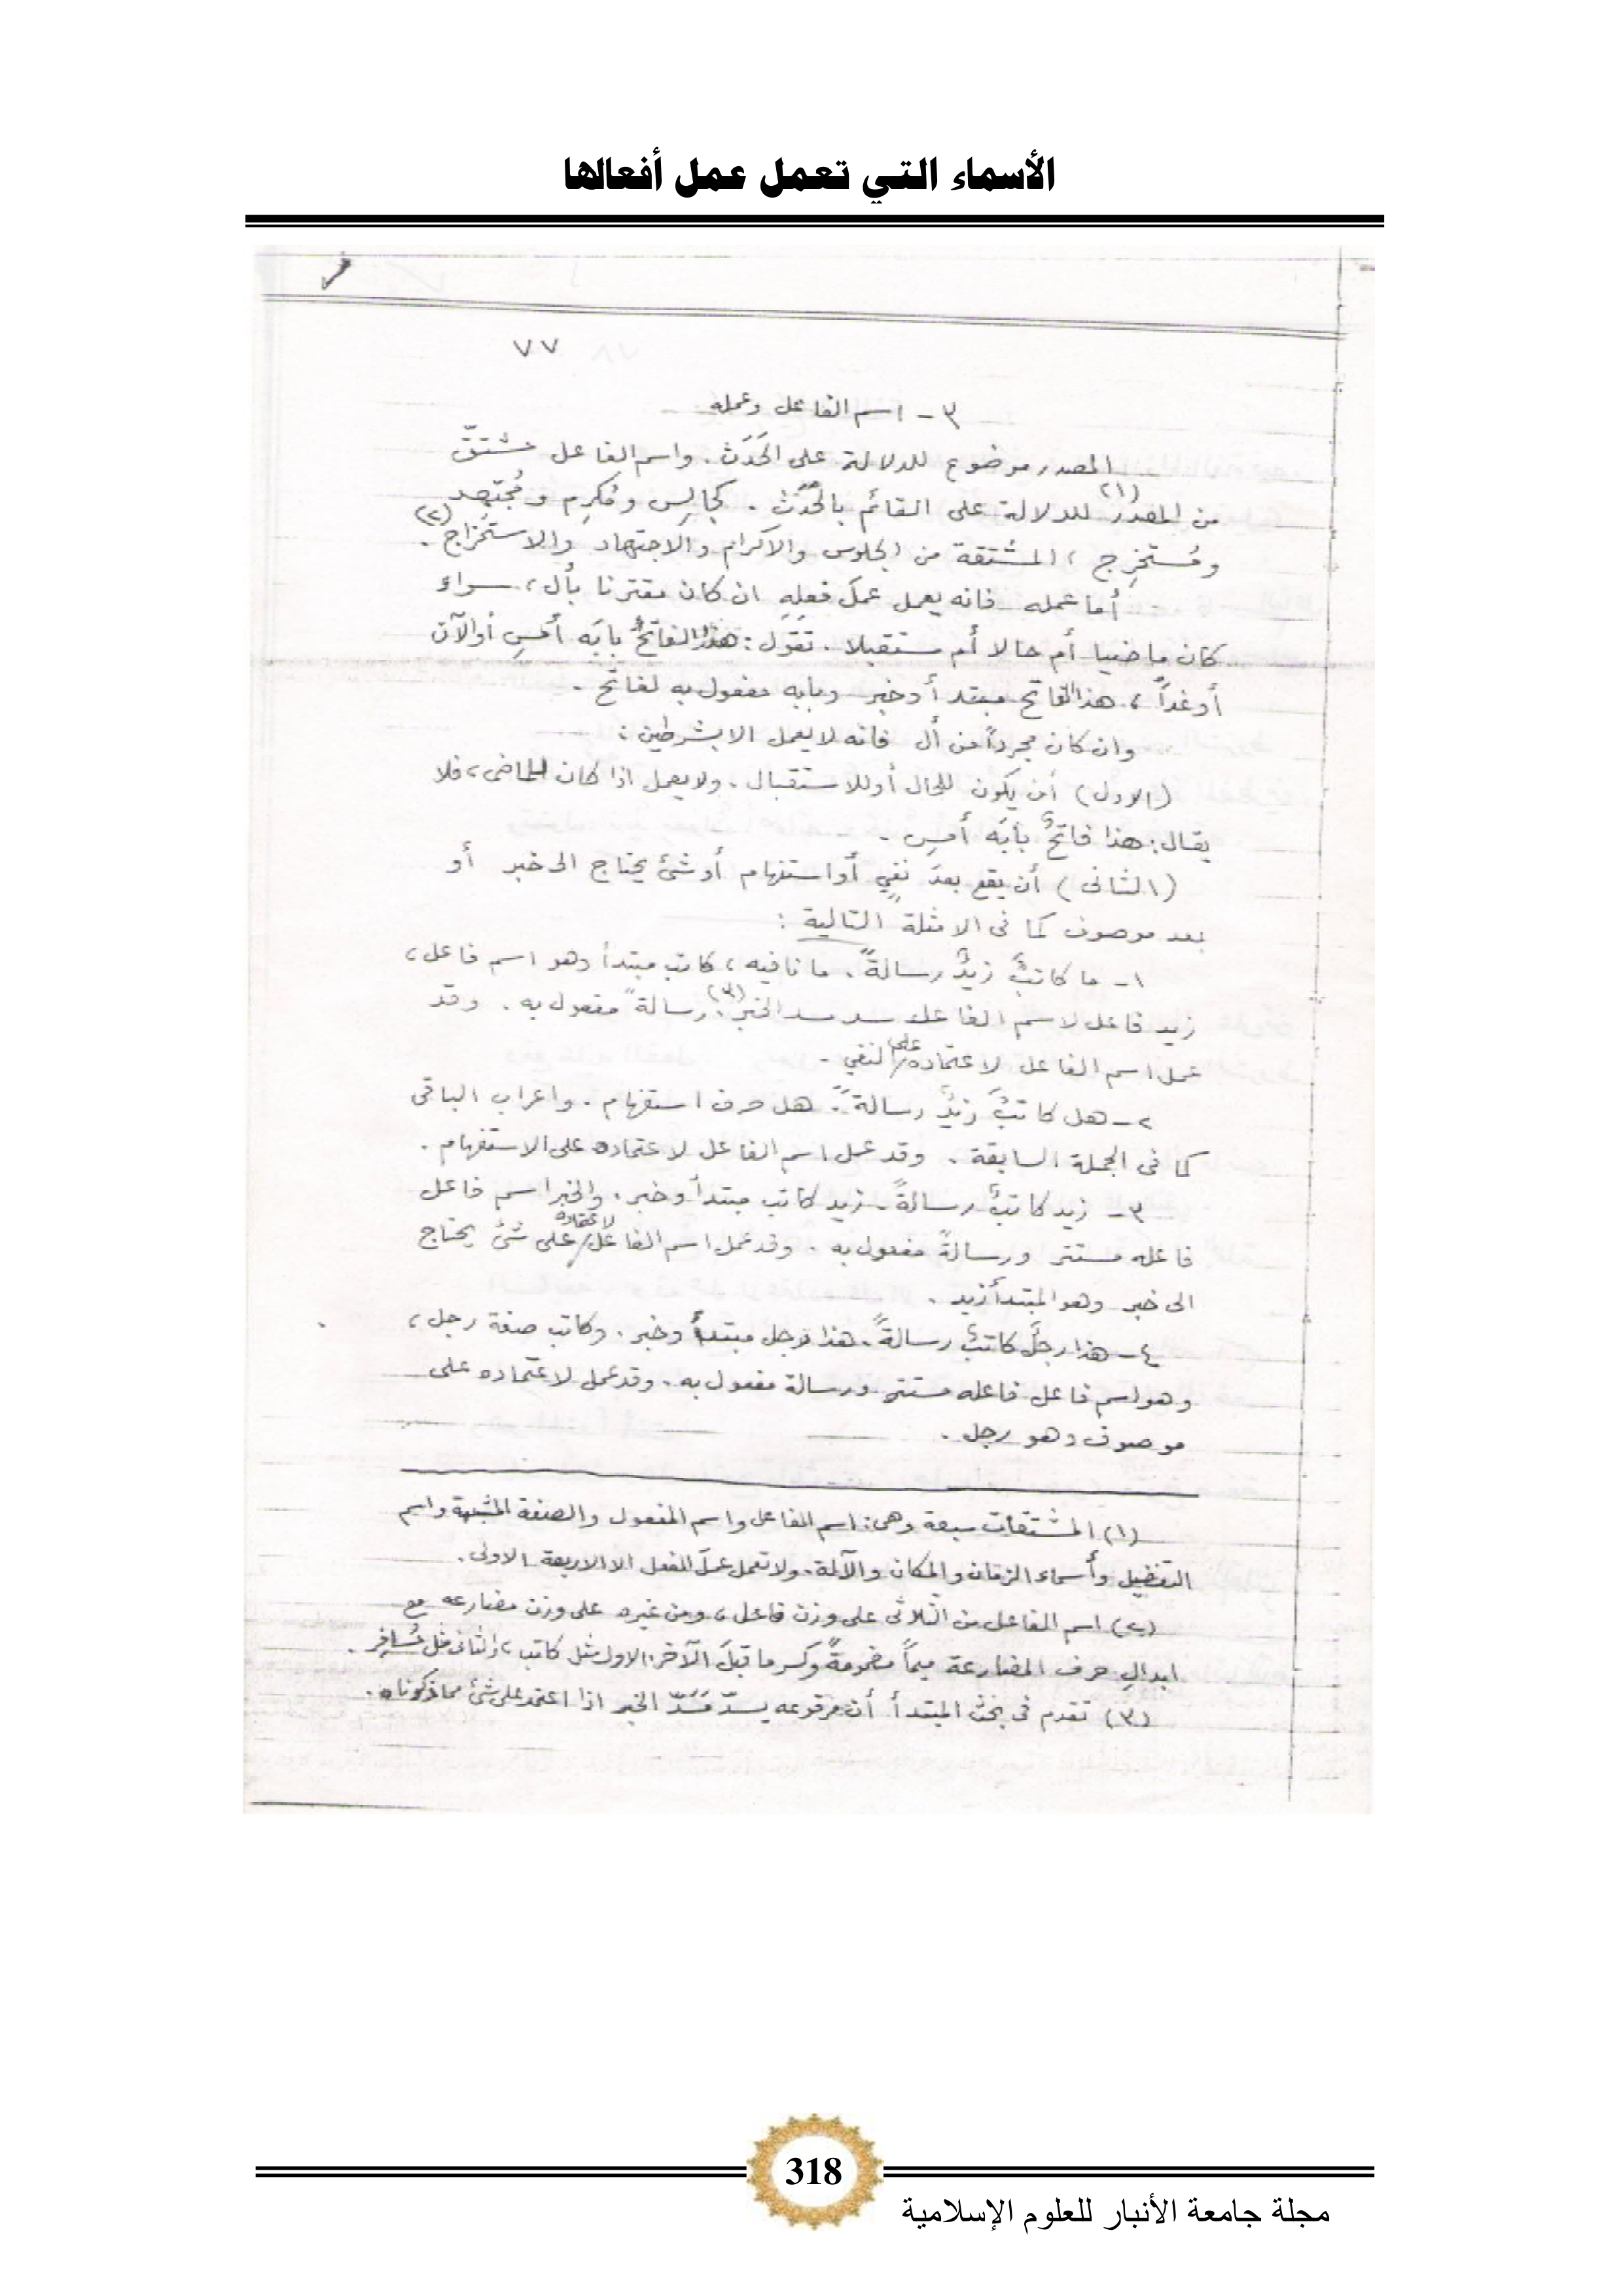 الأسماء التي تعمل عمل أفعالها
٧٧
٣ - اسم الفاعل وعمله
المصدر موضوع للدلالة على الحَدَث. واسم الفاعل مشتقّ
من المصدر(١) للدلالة على القائم بالحَدَث. كجالِس ومُكرِم ومُجتهِد
ومُستخرِج، المشتقة من الجلوس والاكرام والاجتهاد والاستخراج(٢).
أما عمله فانه يعمل عملَ فعلِهِ ان كان مقترنا بأل، سواء
كان ماضيا أم حالا أم مستقبلا. تقول: هذا الفاتحُ بابَه أمسِ أو الآن
أو غداً، هذا الفاتح مبتدأ وخبر وبابه مفعول به لفاتح.
وان كان مجرداً من أل فانه لا يعمل الا بشرطين:
(الاول) أن يكون للحال أو للاستقبال. ولا يعمل اذا كان للماضى، فلا
يقال: هذا فاتحٌ بابَه أمسِ.
(الثانى) أن يقع بعدَ نفيٍ أو استفهام أو شئ يحتاج الى خبر أو
بعد موصوف كما فى الامثلة التالية:
١- ما كاتبٌ زيدٌ رسالةً. ما نافيه، كاتب مبتدأ وهو اسم فاعل،
زيد فاعل لاسم الفاعل سد مسد الخبر(٣). رسالةً مفعول به. وقد
عمل اسم الفاعل لاعتماده على النفي.
٢- هل كاتبٌ زيدٌ رسالةً. هل حرف استفهام. واعراب الباقى
كما فى الجملة السابقة. وقد عمل اسم الفاعل لاعتماده على الاستفهام.
٣- زيد كاتبٌ رسالةً. زيد كاتب مبتدأ وخبر. والخبر اسم فاعل
فاعله مستتر ورسالةً مفعول به. وقد عمل اسم الفاعل لاعتماده على شئ يحتاج
الى خبر وهو المبتدأ زيد.
٤- هذا رجلٌ كاتبٌ رسالةً. هذا رجل مبتدأ وخبر. وكاتب صفة رجل،
وهو اسم فاعل فاعله مستتر ورسالة مفعول به. وقد عمل لاعتماده على
موصوف وهو رجل.
(١) المشتقات سبعة وهى: اسم الفاعل واسم المفعول والصفة المشبهة واسم
التفضيل وأسماء الزمان والمكان والآلة. ولا تعمل عملَ الفعل الا الاربعة الاولى.
(٢) اسم الفاعل من الثلاثى على وزن فاعل، ومن غيره على وزن مضارعه مع
ابدالِ حرف المضارعة ميماً مضمومةً وكسر ما قبلَ الآخر. الاول مثل كاتب، والثانى مثل مُسافِر.
(٣) تقدم فى بحث المبتدأ أن مرفوعه يسدّ مَسَدّ الخبر اذا اعتمد على شئ مما ذكرناه.
318
مجلة جامعة الأنبار للعلوم الإسلامية